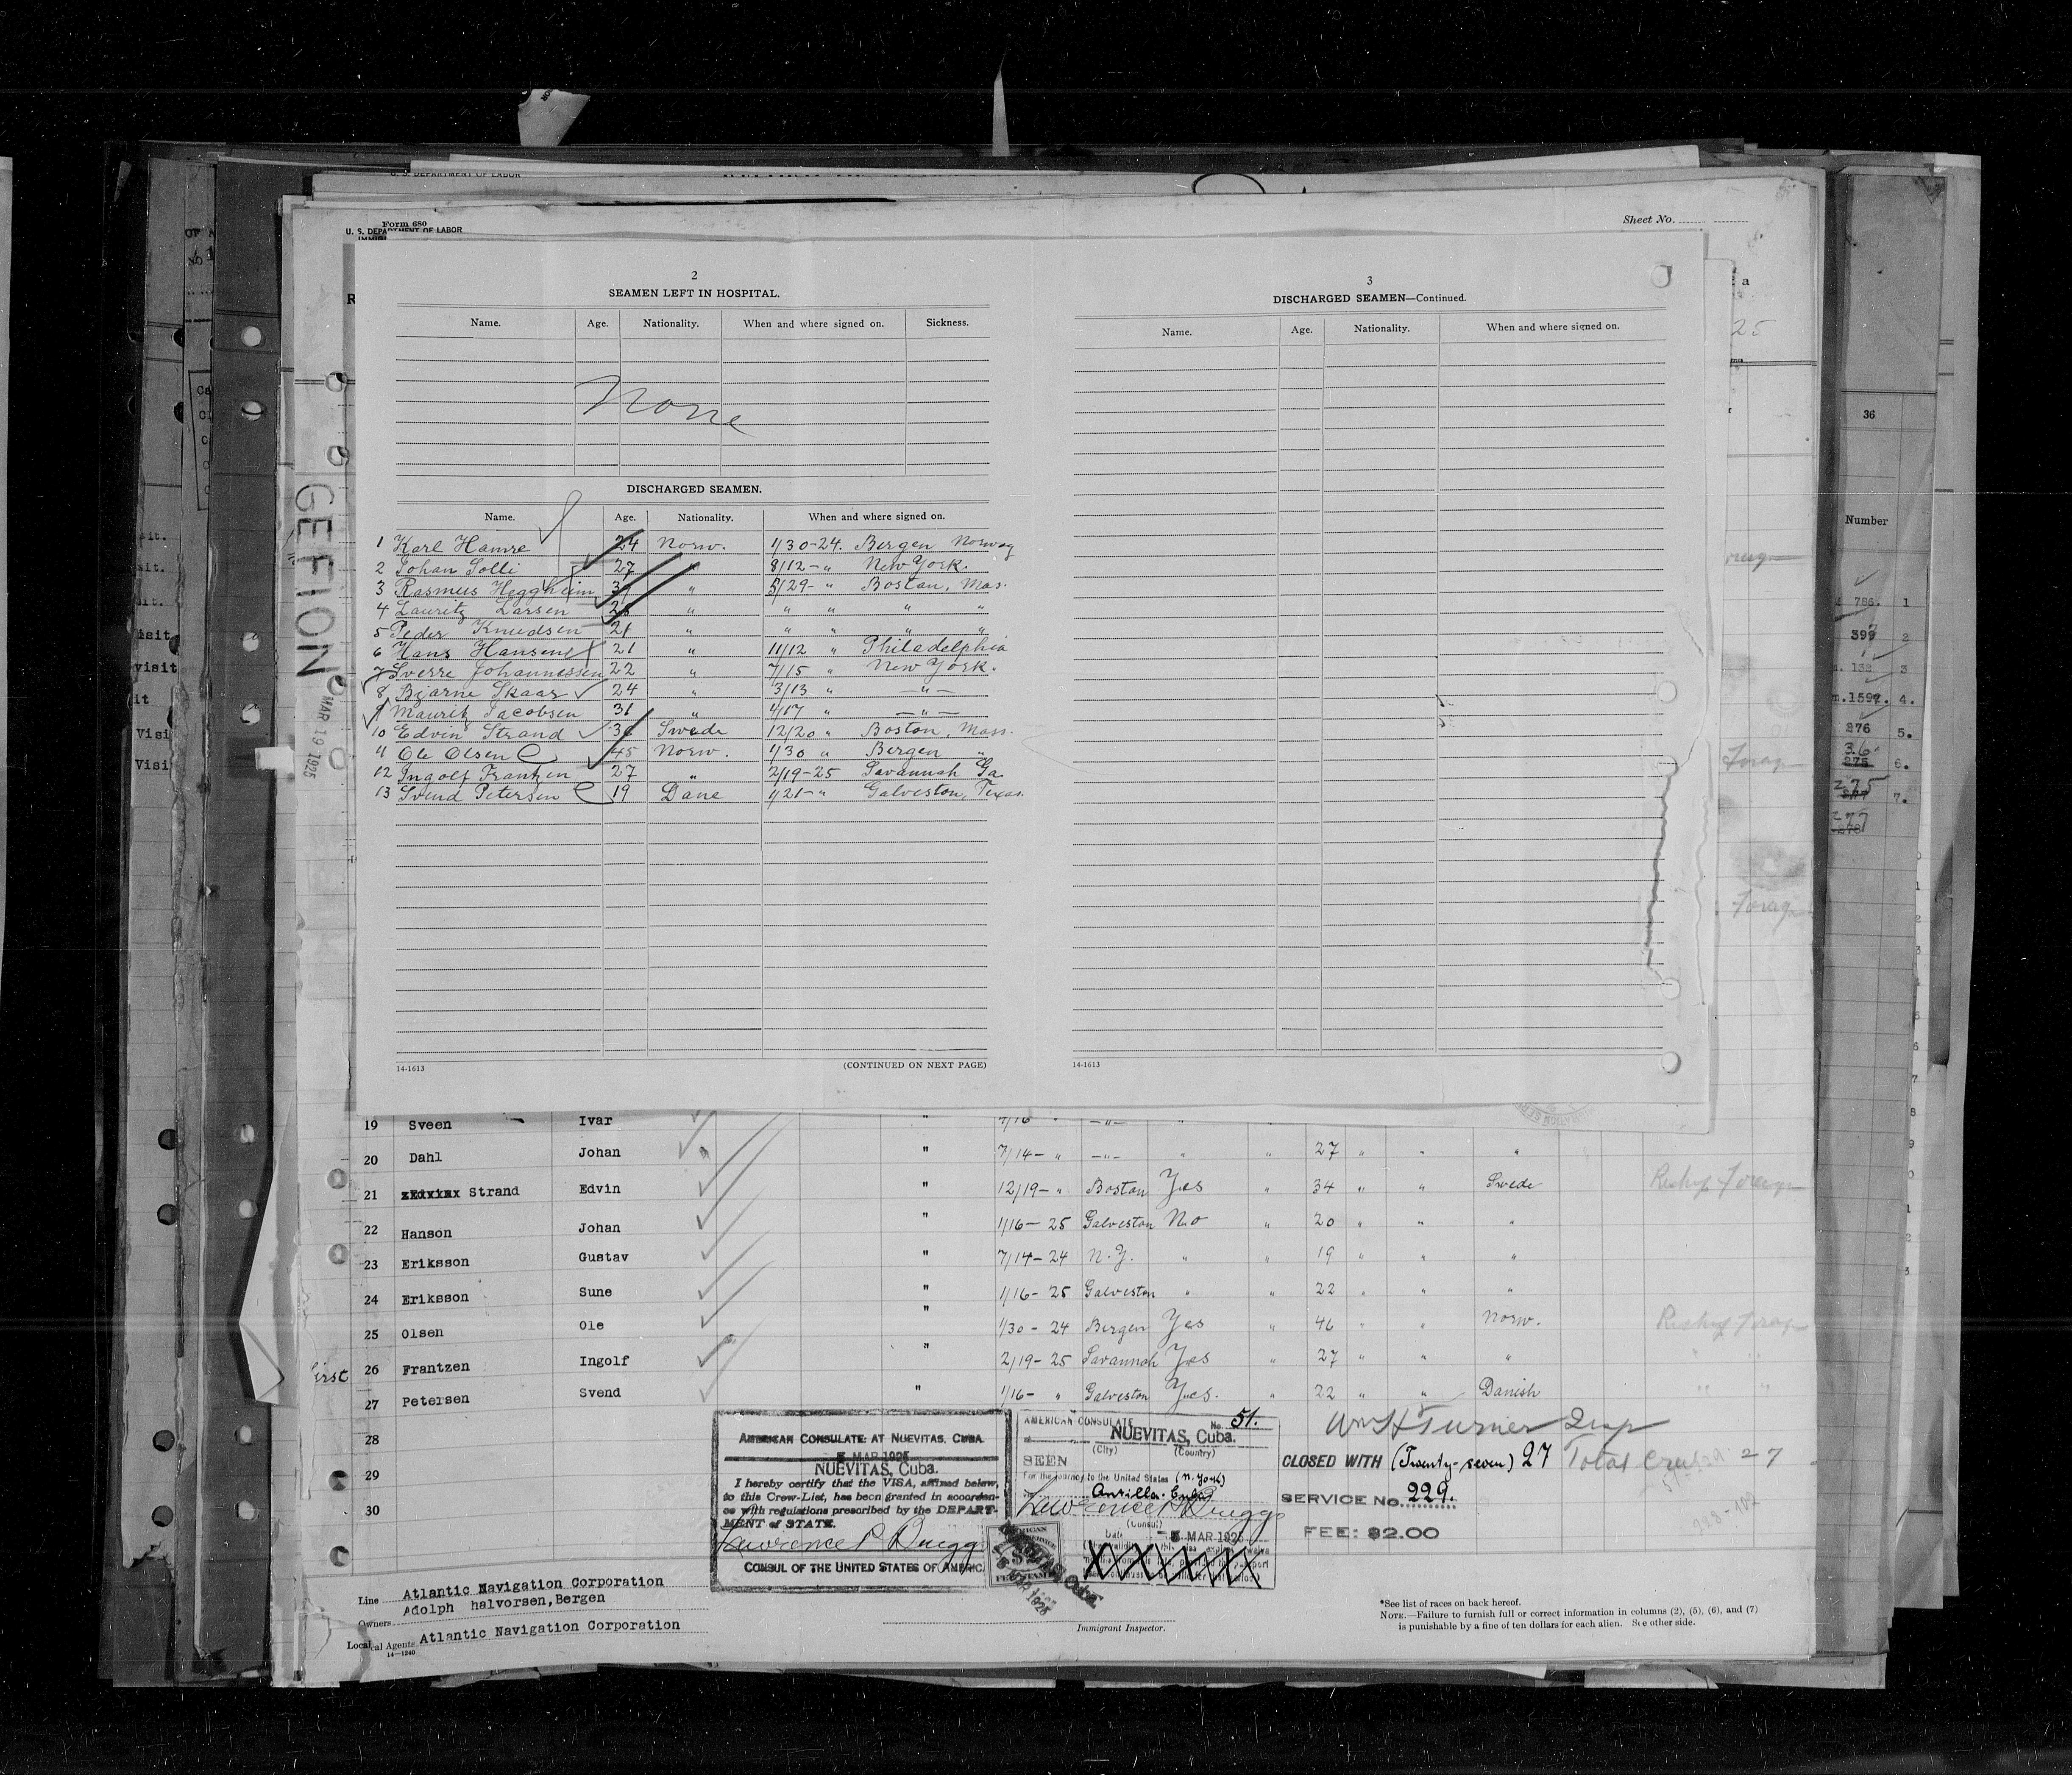 U. S. DEPARTMENT OF LABOR
Form 680
U. S. DEPARTMENT OF LABOR
Sheet No.
2
SEAMEN LEFT IN HOSPITAL.
Name. Age. Nationality. When and where signed on. Sickness.
None
DISCHARGED SEAMEN.
Name. Age. Nationality. When and where signed on.
1 Karl Hamre 24 Norw. 1/30-24. Bergen Norway
2 Johan Solli 27 " 8/12- " New York.
3 Rasmus Heggheim " 5/29- " Boston, Mas.
4 Lauritz Larsen " " " " "
5 Peder Knudsen 21 " " " " "
6 Hans Hansen 21 " 11/12 " Philadelphia
7 Sverre Johannessen 22 " 7/15 " New York.
8 Bjarne Skaar 24 " 3/13 " —"—
9 Mauritz Jacobsen 31 " 4/17 " —"—
10 Edvin Strand Swede 12/20 " Boston, Mass.
11 Ole Olsen 45 Norw. 1/30 " Bergen "
12 Ingolf Frantzen 27 " 2/19-25 Savannah Ga.
13 Svend Petersen 19 Dane 1/21- " Galveston, Texas.
14-1613 (CONTINUED ON NEXT PAGE)
3
DISCHARGED SEAMEN—Continued.
Name. Age. Nationality. When and where signed on.
14-1613
GEFION
MAR 19 1925
25
36
Number
786. 1
399 2
132 3
1597. 4.
276 5.
36
275 6.
275
277 7.
277
278
19 Sveen Ivar " 7/16 " —"— "
20 Dahl Johan " 7/14- " —"— " " 27 " " "
21 Strand Edvin " 12/19- " Boston Yes " 34 " " Swede Reship Foreign
22 Hanson Johan " 1/16-25 Galveston No " 20 " " "
23 Eriksson Gustav " 7/14-24 N.Y. " " 19 " " "
24 Eriksson Sune " 1/16-25 Galveston " " 22 " " "
25 Olsen Ole " 1/30-24 Bergen Yes " 46 " " Norw. Reship Foreign
first 26 Frantzen Ingolf " 2/19-25 Savannah Yes " 27 " " " " "
27 Petersen Svend " 1/16- " Galveston Yes. " 22 " " Danish " "
28
29
30
AMERICAN CONSULATE AT NUEVITAS, CUBA.
MAR 1925
NUEVITAS, Cuba.
I hereby certify that the VISA, affixed below,
to this Crew-List, has been granted in accordan-
ce with regulations prescribed by the DEPART-
MENT of STATE.
Lawrence P. Briggs
CONSUL OF THE UNITED STATES OF AMERIC
AMERICAN CONSULATE No. 51.
NUEVITAS, Cuba.
(City) (Country)
SEEN
For the journey to the United States (N. York)
Antilla. Cuba
Lawrence P. Briggs
(Consul)
Date MAR. 1925
Wm H Turner Insp
CLOSED WITH (Twenty-seven) 27 Total Crew 27
SERVICE No. 229.
FEE: $2.00
Line Atlantic Navigation Corporation
Owners Adolph halvorsen, Bergen
Local Agents Atlantic Navigation Corporation
14—1240
Immigrant Inspector.
*See list of races on back hereof.
NOTE.—Failure to furnish full or correct information in columns (2), (5), (6), and (7)
is punishable by a fine of ten dollars for each alien. See other side.